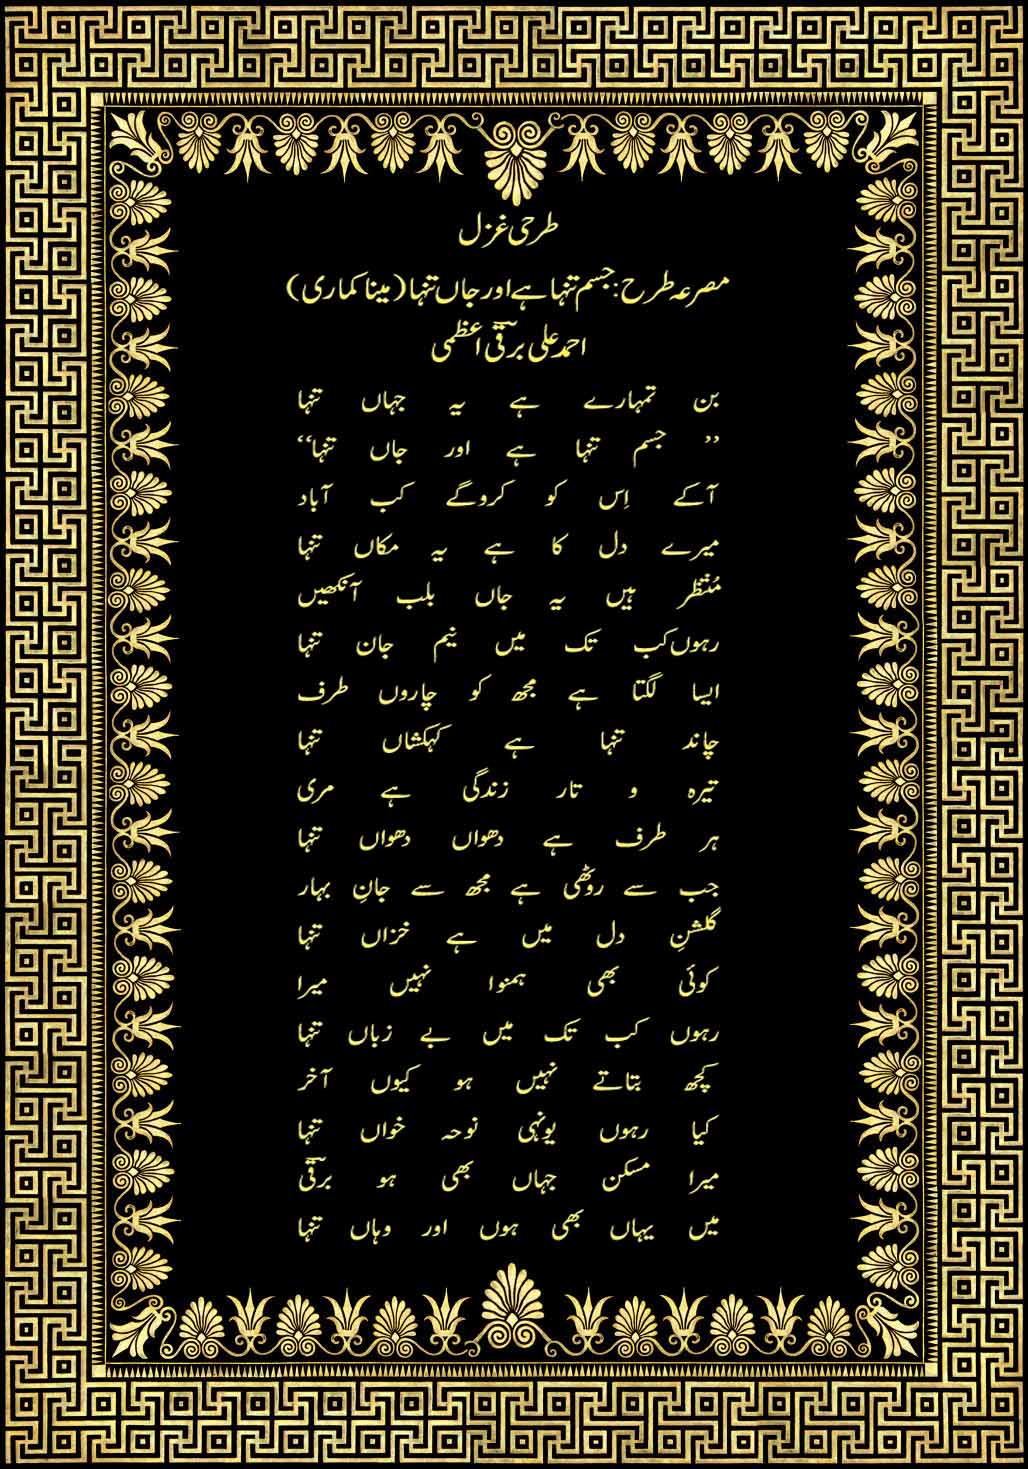 طرحی غزل
مصرعہ طرح : جسم تنہا ہے اور جاں تنہا (مینا کماری)
احمد علی برقیؔ اعظمی
بن تمہارے ہے یہ جہاں تنہا
’’ جسم تنہا ہے اور جاں تنہا‘‘
آکے اِس کو کروگے کب آباد
میرے دل کا ہے یہ مکاں تنہا
مُنتظر ہیں یہ جاں بلب آنکھیں
رہوں کب تک میں نیم جان تنہا
ایسا لگتا ہے مجھ کو چاروں طرف
چاند تنہا ہے کہکشاں تنہا
تیرہ و تار زندگی ہے مری
ہر طرف ہے دھواں دھواں تنہا
جب سے روٹھی ہے مجھ سے جانِ بہار
گلشنِ دل میں ہے خزاں تنہا
کوئی بھی ہمنوا نہیں میرا
رہوں کب تک میں بے زباں تنہا
کچھ بتاتے نہیں ہو کیوں آخر
کیا رہوں یونہی نوحہ خواں تنہا
میرا مسکن جہاں بھی ہو برقیؔ
میں یہاں بھی ہوں اور وہاں تنہا